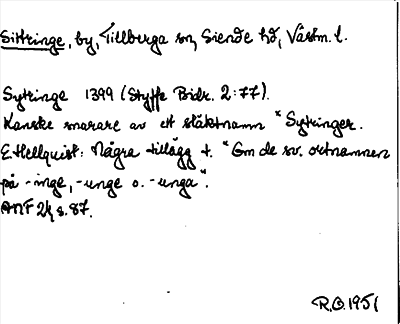 Sittringe, by, Tillberga sn, Siende hd, Västm. l.
Sytringe 1399 (Styffe Bidr. 2:77).
Kanske snarare av ett släktnamn *Sytringer.
E. Hellquist: Några tillägg t. "Om de sv. ortnamnen
på -inge, -unge o. -unga".
ANF 24, s. 87.
R.O. 1951